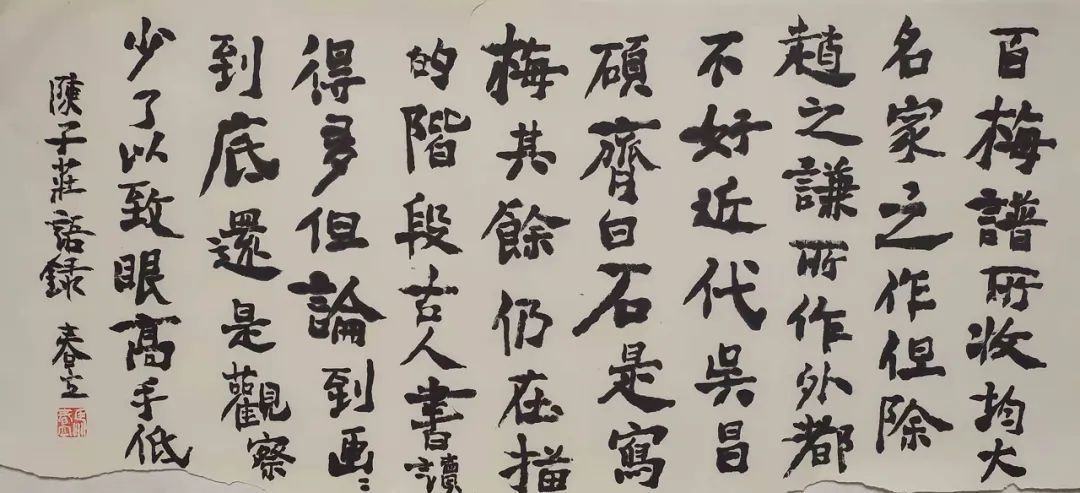 百梅譜所收均大
名家之作但除
趙之謙所作外都
不好近代吳昌
碩齊白石是寫
梅其餘仍在描
的階段古人書讀
得多但論到画〻
到底還是觀察
少了以致眼高手低
陳子莊語録 春立